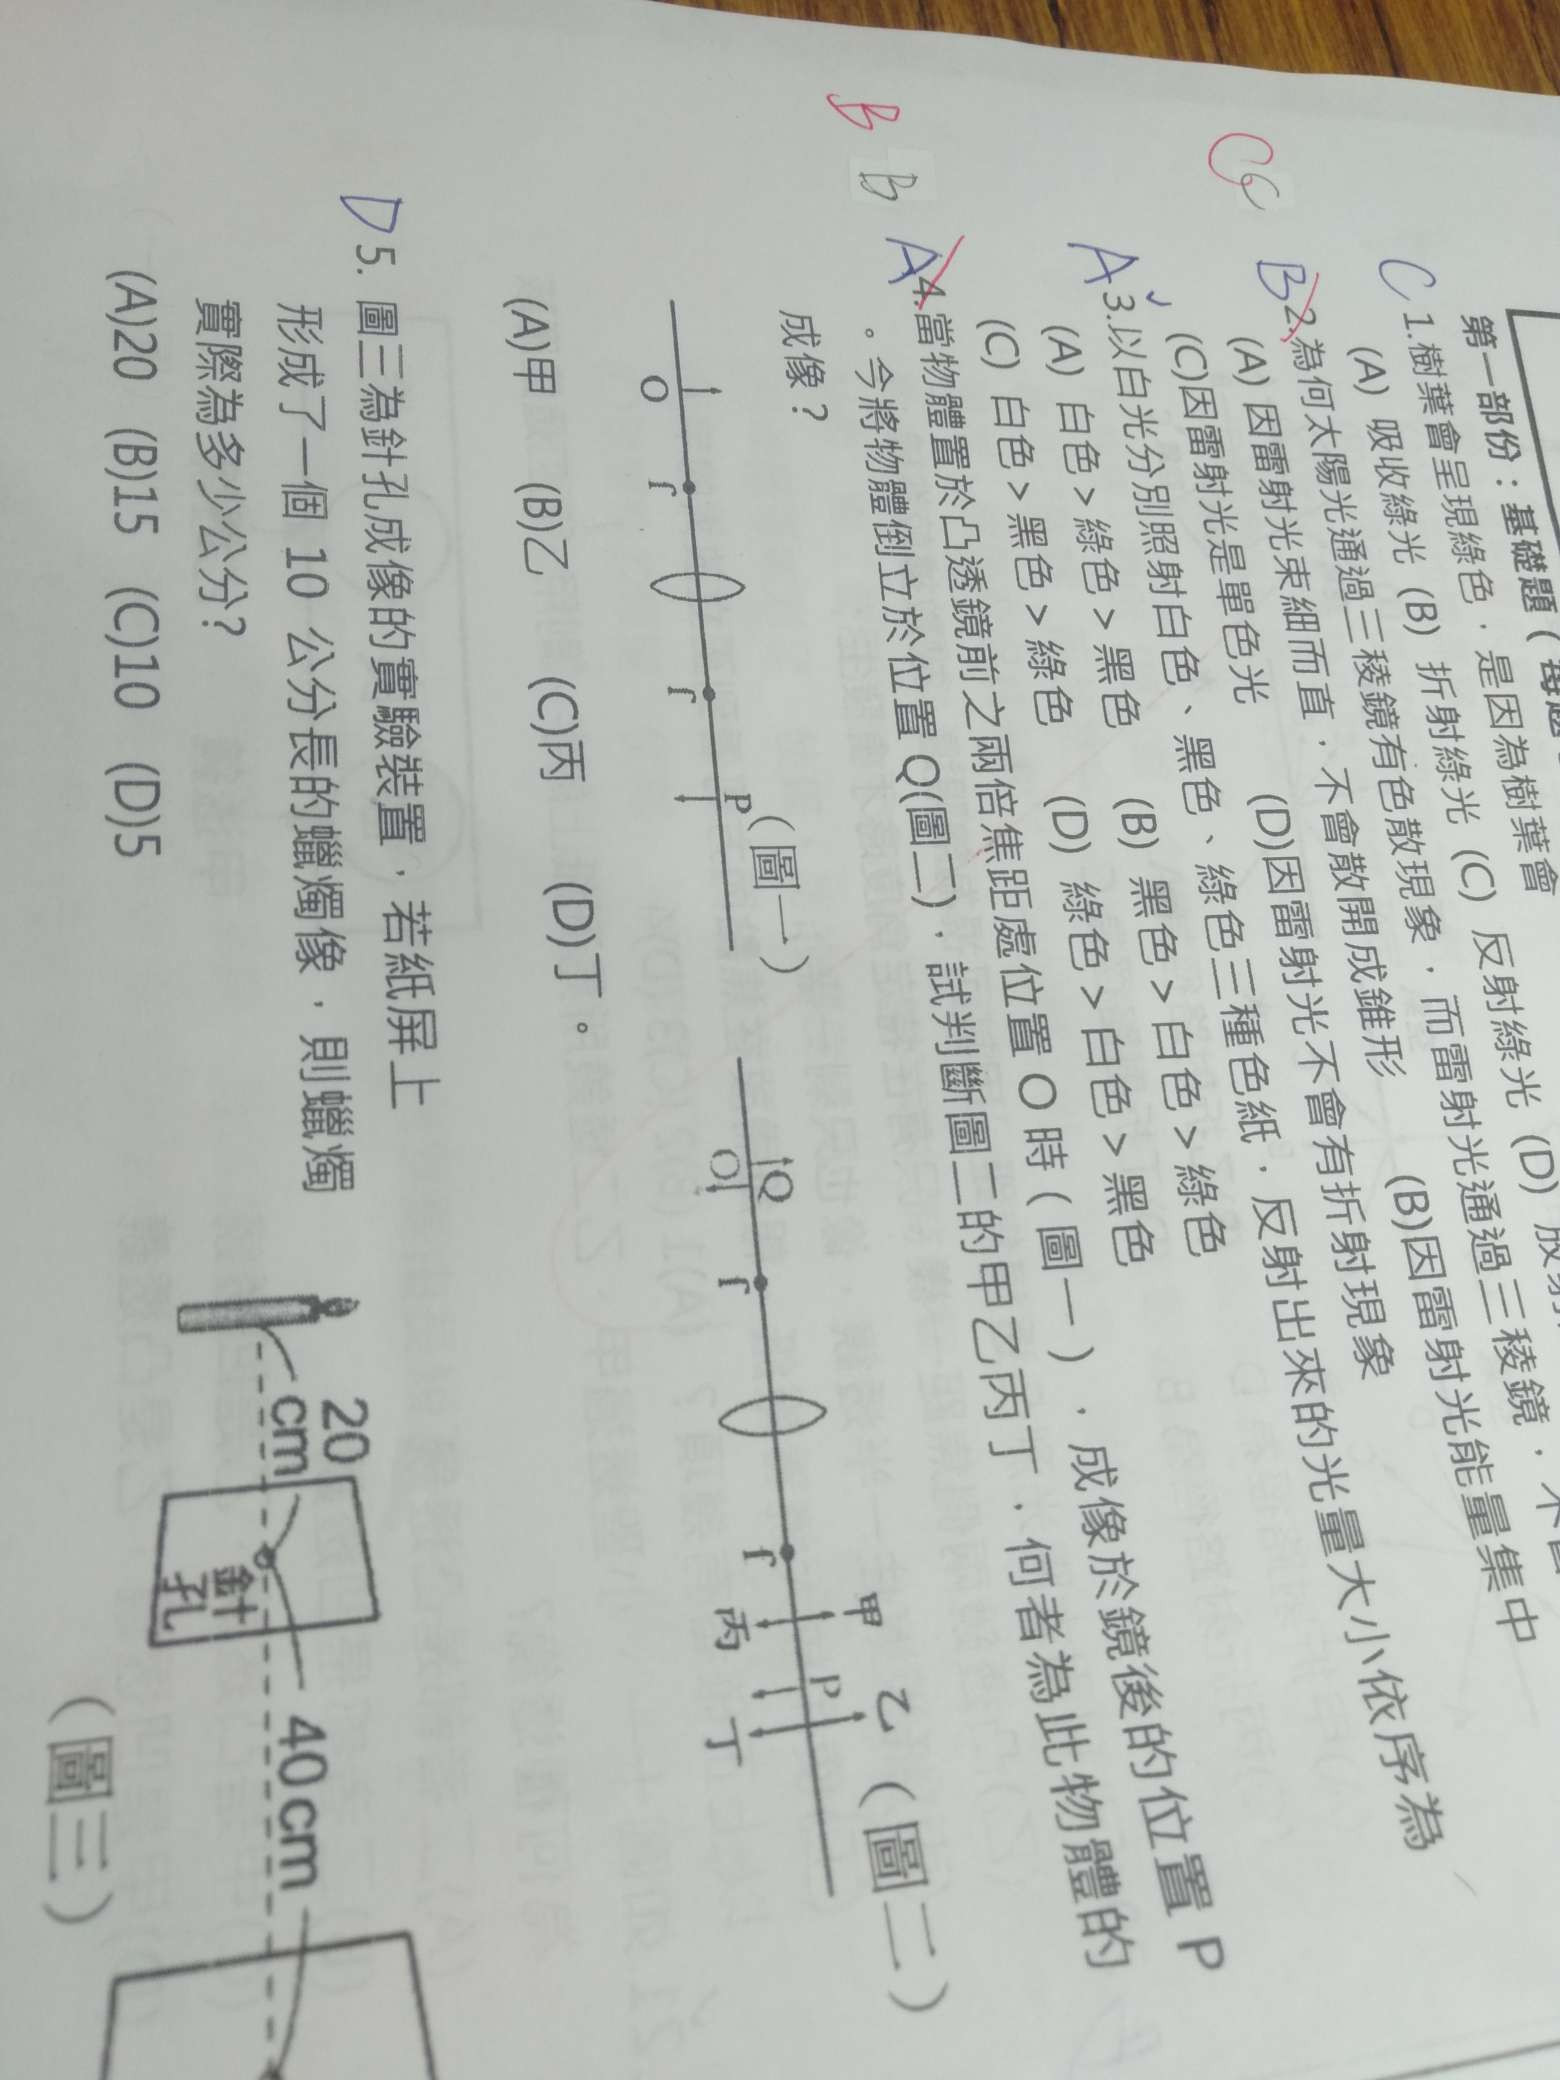 第一部份：基礎題（每題
C 1.樹葉會呈現綠色，是因為樹葉會
(A) 吸收綠光 (B) 折射綠光 (C) 反射綠光 (D)
C C B 2.為何太陽光通過三稜鏡有色散現象，而雷射光通過三稜鏡，不
(A) 因雷射光束細而直，不會散開成錐形 (B)因雷射光能量集中
(C)因雷射光是單色光 (D)因雷射光不會有折射現象
A 3.以白光分別照射白色、黑色、綠色三種色紙，反射出來的光量大小依序為
(A) 白色>綠色>黑色 (B) 黑色>白色>綠色
(C) 白色>黑色>綠色 (D) 綠色>白色>黑色
B B A 4.當物體置於凸透鏡前之兩倍焦距處位置 O 時（圖一），成像於鏡後的位置 P
。今將物體倒立於位置 Q(圖二)，試判斷圖二的甲乙丙丁，何者為此物體的
成像？
O f f P
（圖一）
Q O f f 甲 丙 P 乙 丁
（圖二）
(A)甲 (B)乙 (C)丙 (D)丁。
D 5. 圖三為針孔成像的實驗裝置，若紙屏上
形成了一個 10 公分長的蠟燭像，則蠟燭
實際為多少公分？
(A)20 (B)15 (C)10 (D)5
20
cm
針
孔
40cm
（圖三）